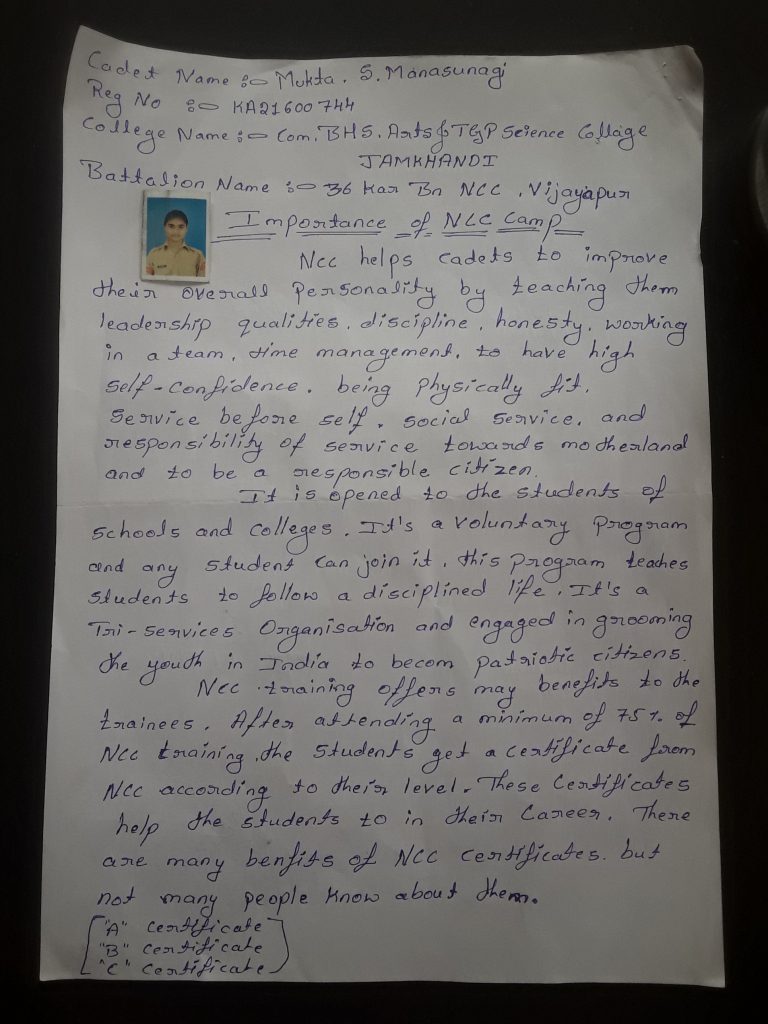 Cadet Name :- Mukta. S. Manasunagi
Reg No :- KA21600744
College Name :- Com. BHS. Arts & TGP Science Collage
JAMKHANDI
Battalion Name :- 36 Kar Bn NCC, Vijayapur
Importance of NCC Camp
Ncc helps cadets to improve
their overall personality by teaching them
leadership qualities, discipline, honesty, working
in a team, time management, to have high
self-confidence, being physically fit,
Service before self, social service, and
responsibility of service towards motherland
and to be a responsible citizen.
It is opened to the students of
schools and colleges. It's a voluntary program
and any student can join it, this program teaches
students to follow a disciplined life. It's a
Tri-services Organisation and engaged in grooming
the youth in India to becom patriotic citizens.
Ncc training offers may benefits to the
trainees. After attending a minimum of 75% of
NCC training, the students get a certificate from
NCC according to their level. These certificates
help the students to in their career. There
are many benfits of NCC certificates. but
not many people know about them.
"A" certificate
"B" certificate
"C" certificate